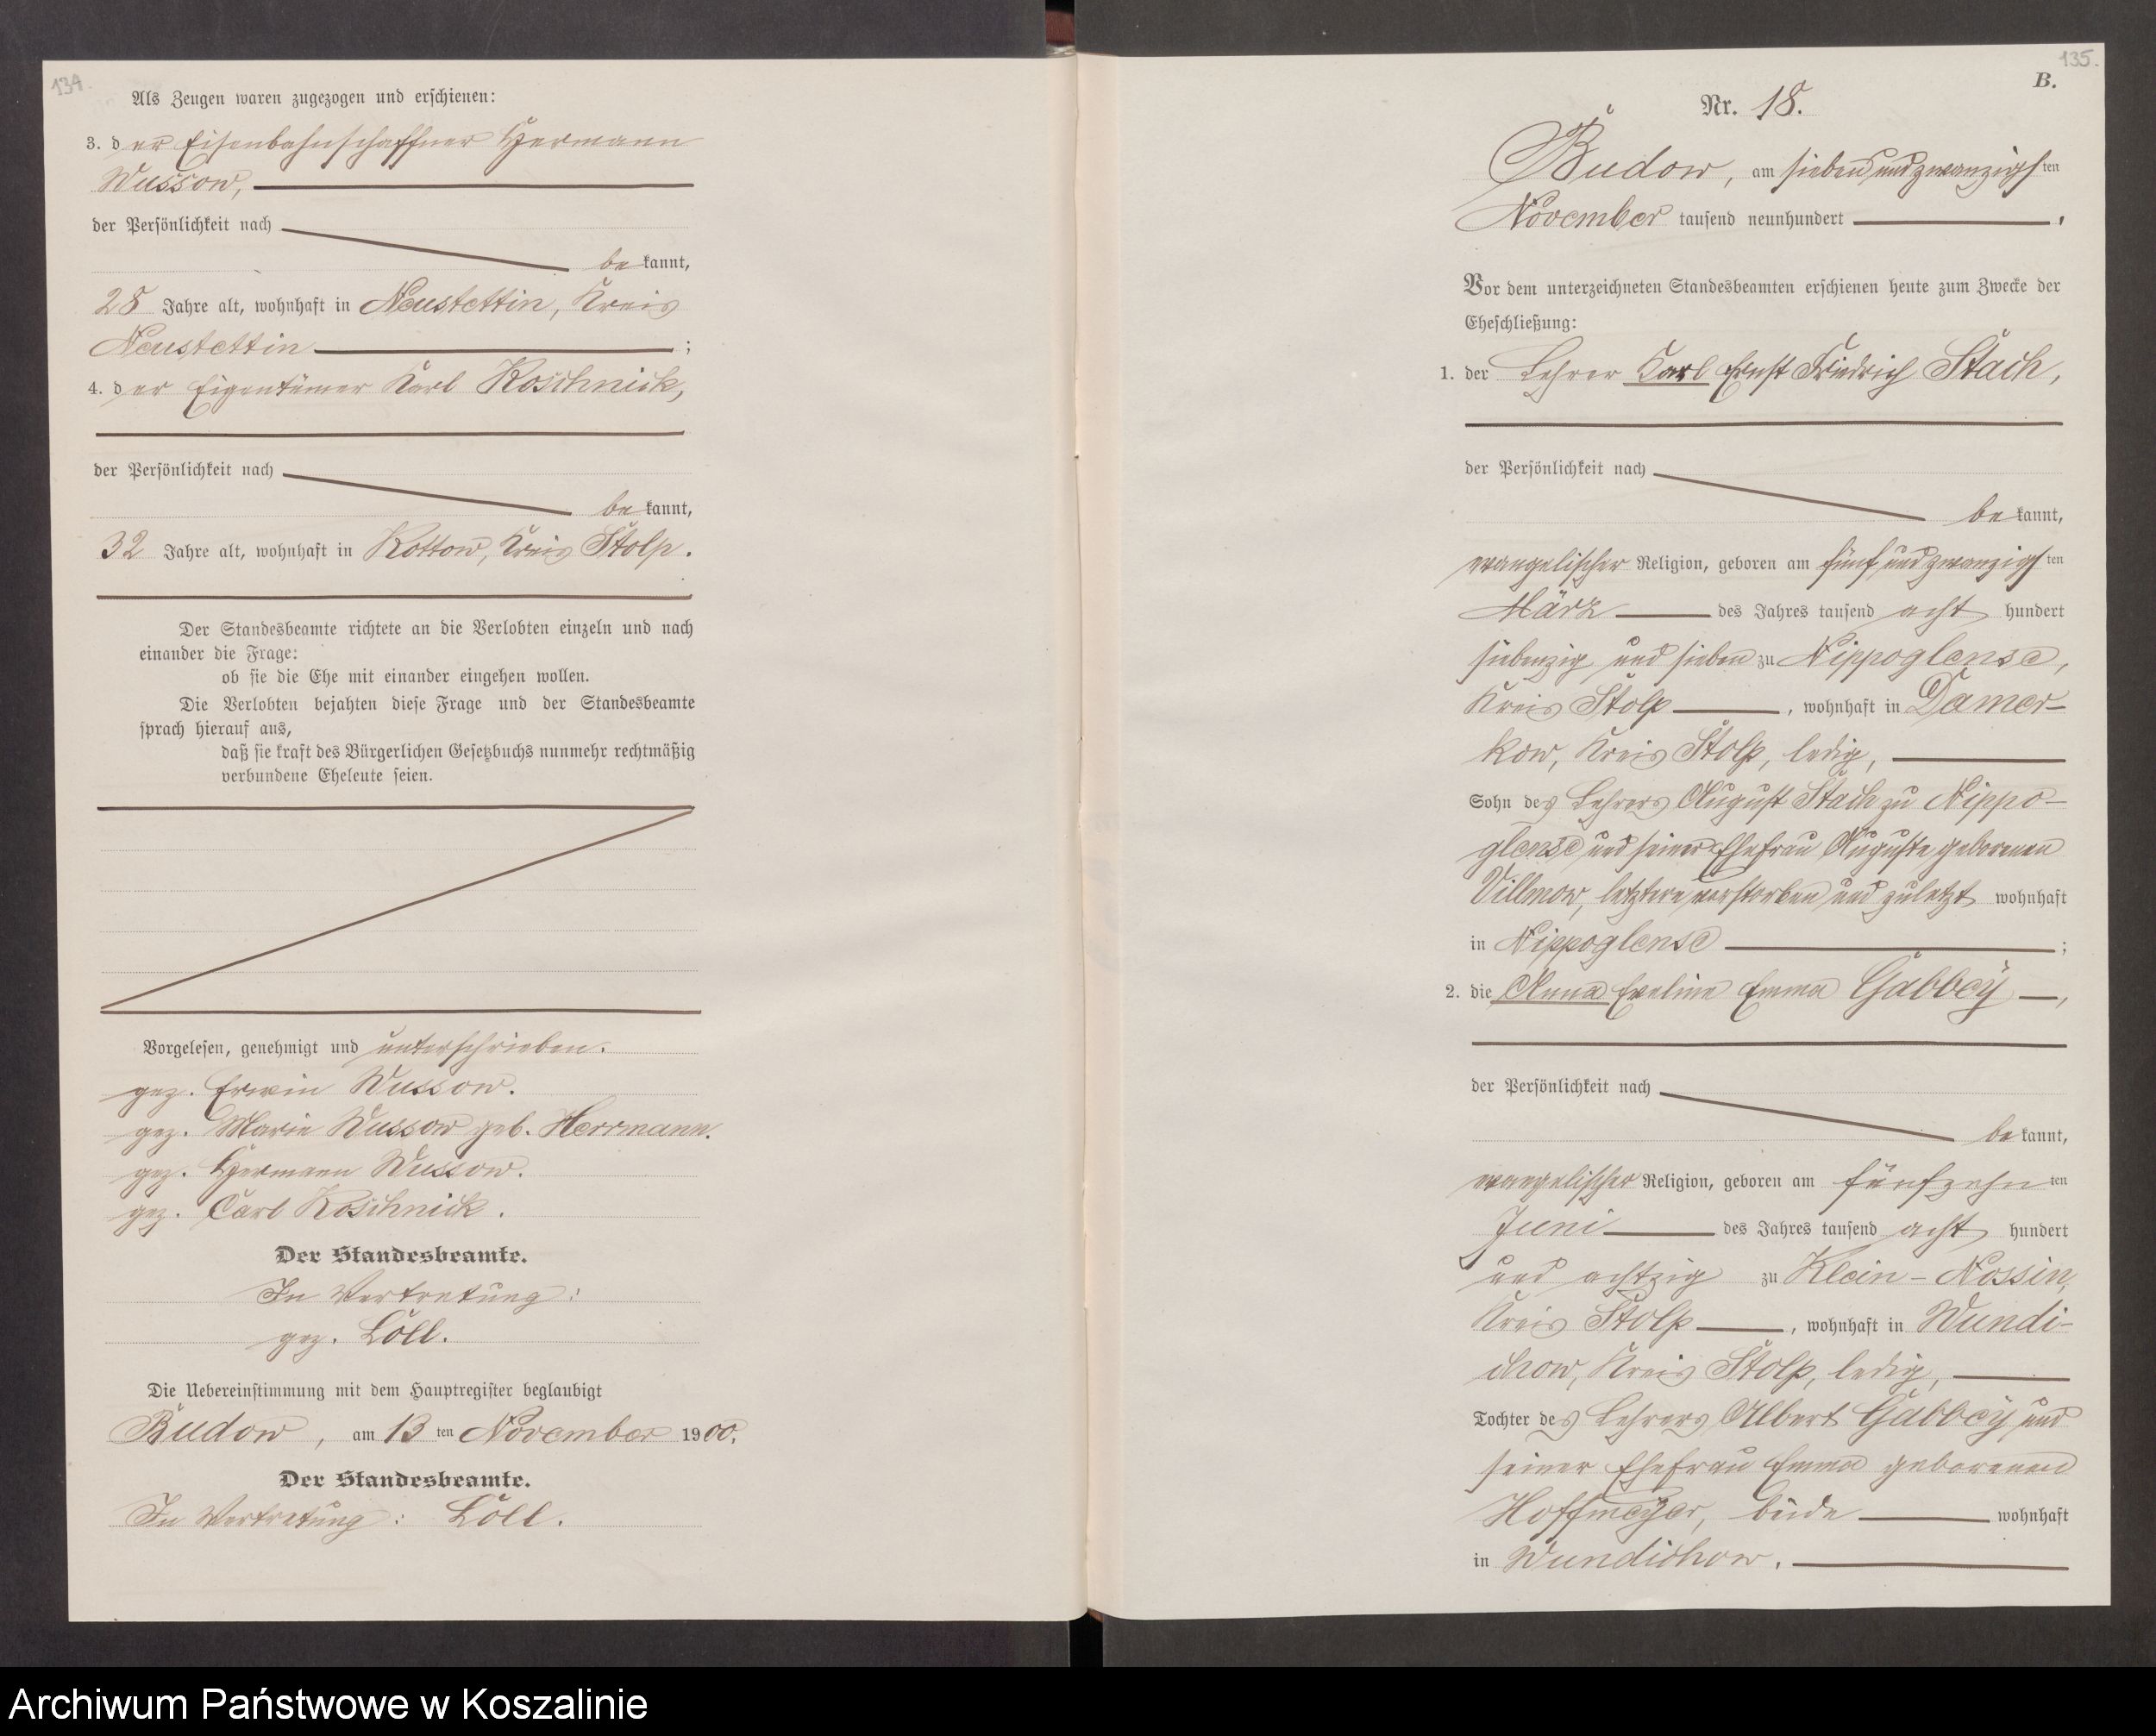 134.
Als Zeugen waren zugezogen und erschienen:
3. der Eisenbahnschaffner Hermann
Wussow,
der Persönlichkeit nach
bekannt,
28 Jahre alt, wohnhaft in Neustettin, Kreis
Neustettin ;
4. der Eigentümer Karl Koschnick,
der Persönlichkeit nach
bekannt,
32 Jahre alt, wohnhaft in Kottow, Kreis Stolp.
Der Standesbeamte richtete an die Verlobten einzeln und nach
einander die Frage:
ob sie die Ehe mit einander eingehen wollen.
Die Verlobten bejahten diese Frage und der Standesbeamte
sprach hierauf aus,
daß sie kraft des Bürgerlichen Gesetzbuchs nunmehr rechtmäßig
verbundene Eheleute seien.
Vorgelesen, genehmigt und unterschrieben.
gez. Erwin Wussow.
gez. Marie Wussow geb. Herrmann.
gez. Hermann Wussow.
gez. Carl Koschnick.
Der Standesbeamte.
In Vertretung:
gez. Löll.
Die Uebereinstimmung mit dem Hauptregister beglaubigt
Budow, am 13ten November 1900.
Der Standesbeamte.
In Vertretung: Löll.
135.
B.
Nr. 18.
Budow, am siebenundzwanzigsten
November tausend neunhundert ,
Vor dem unterzeichneten Standesbeamten erschienen heute zum Zwecke der
Eheschließung:
1. der Lehrer Karl Ernst Friedrich Stach,
der Persönlichkeit nach
bekannt,
evangelischer Religion, geboren am fünfundzwanzigsten
März des Jahres tausend acht hundert
siebenzig und sieben zu Nippoglense,
Kreis Stolp , wohnhaft in Damer-
kow, Kreis Stolp, ledig,
Sohn des Lehrers August Stach zu Nippo-
glense und seiner Ehefrau Auguste geborenen
Villmow, letztere verstorben und zuletzt wohnhaft
in Nippoglense ;
2. die Anna Eveline Emma Gabbey ,
der Persönlichkeit nach
bekannt,
evangelischer Religion, geboren am fünfzehnten
Juni des Jahres tausend acht hundert
und achtzig zu Klein-Nossin,
Kreis Stolp , wohnhaft in Wundi-
chow, Kreis Stolp, ledig,
Tochter des Lehrers Albert Gabbey und
seiner Ehefrau Emma geborenen
Hoffmeyer, beide wohnhaft
in Wundichow.
Archiwum Państwowe w Koszalinie